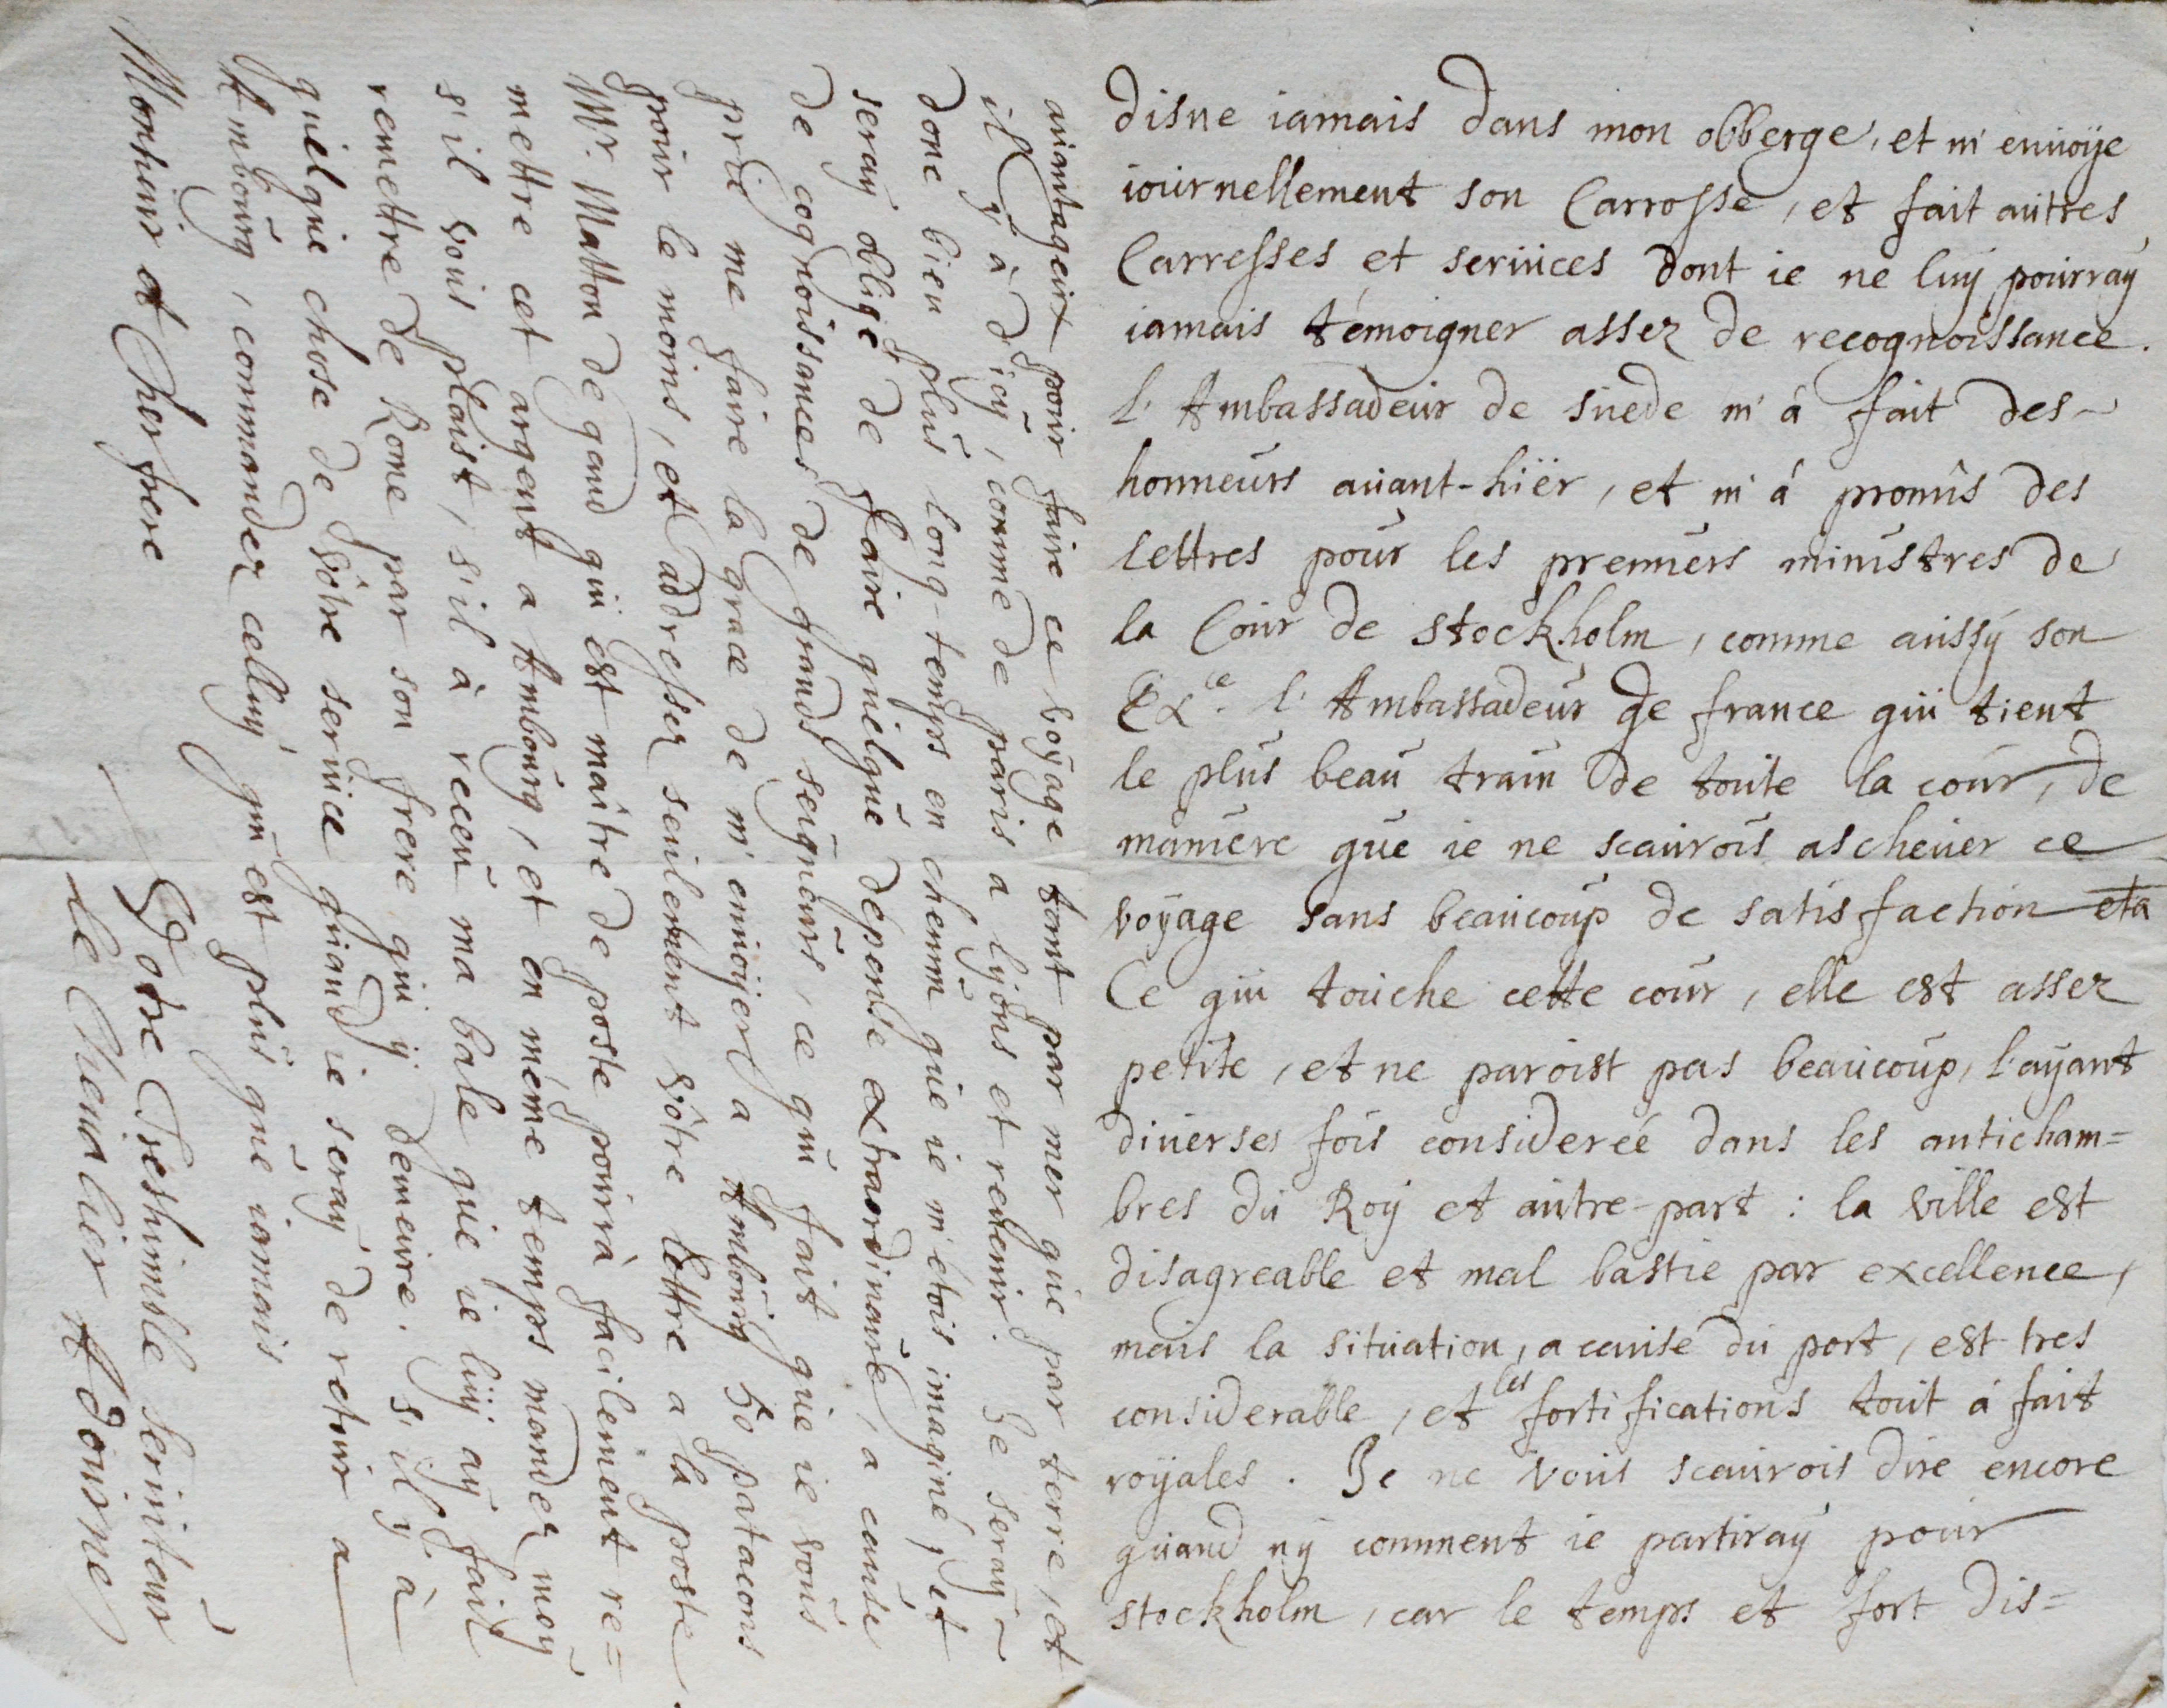 disne iamais dans mon obberge, et m'enuoÿe
iournellement son Carrosse, et fait autres
Carresses et seruices dont ie ne luÿ pourraÿ
iamais témoigner assez de recognoissance.
l'Ambassadeur de suede m'à fait des
honneurs auant-hiër, et m'á promis des
lettres pour les premiers ministres de
la Cour de stockholm, comme aussÿ son
Exce. l'Ambassadeur de france qui tient
le plus beau train de toute la cour, de
maniere que ie ne scaurois ascheuer ce
voÿage sans beaucoup de satisfaction eta
Ce qui touche cette cour, elle est assez
petite, et ne paroist pas beaucoup, l'aÿant
diuerses fois considereé dans les anticham=
bres du Roÿ et autre-part : la ville est
disagreable et mal bastie par excellence,
mais la situation, a cause du port, est tres
considerable, et les fortifications tout á fait
roÿales. Je ne vous scaurois dire encore
quand nÿ comment ie partiraÿ pour
stockholm, car le temps et fort dis=
auantageux pour faire ce voÿage tant par mer que par terre, et
il ÿ à d'icÿ, comme de paris a lÿons et reuenir. Je seraÿ
donc bien plus long-temps en chemin que ie m'étois imaginé, et
seraÿ obligé de faire quelque dépense extraordinaire, a cause
de cognoissances de grands seigneurs, ce qui fait que ie vous
prie me faire la grace de m'enuoÿer a Ambourg 50 patacons
pour le moins, et addresser seulement vôtre lettre a la poste.
Mr. Matton de gand qui est maitre de poste pourrà facilement re=
mettre cet argent a Ambourg, et en méme temps mandez moÿ
s'il vous plaist, s'il à receu ma bale que ie luÿ aÿ fait
remettre de Rome par son frere qui ÿ demeure. s'il ÿ à
quelque chose de vôtre seruice quand ie seraÿ de retour a
Ambourg, commandez celluÿ qui est plus que iamais
Monsieur et Cher frere
Vôtre Treshumble seruiteur
le Cheualier Adourne